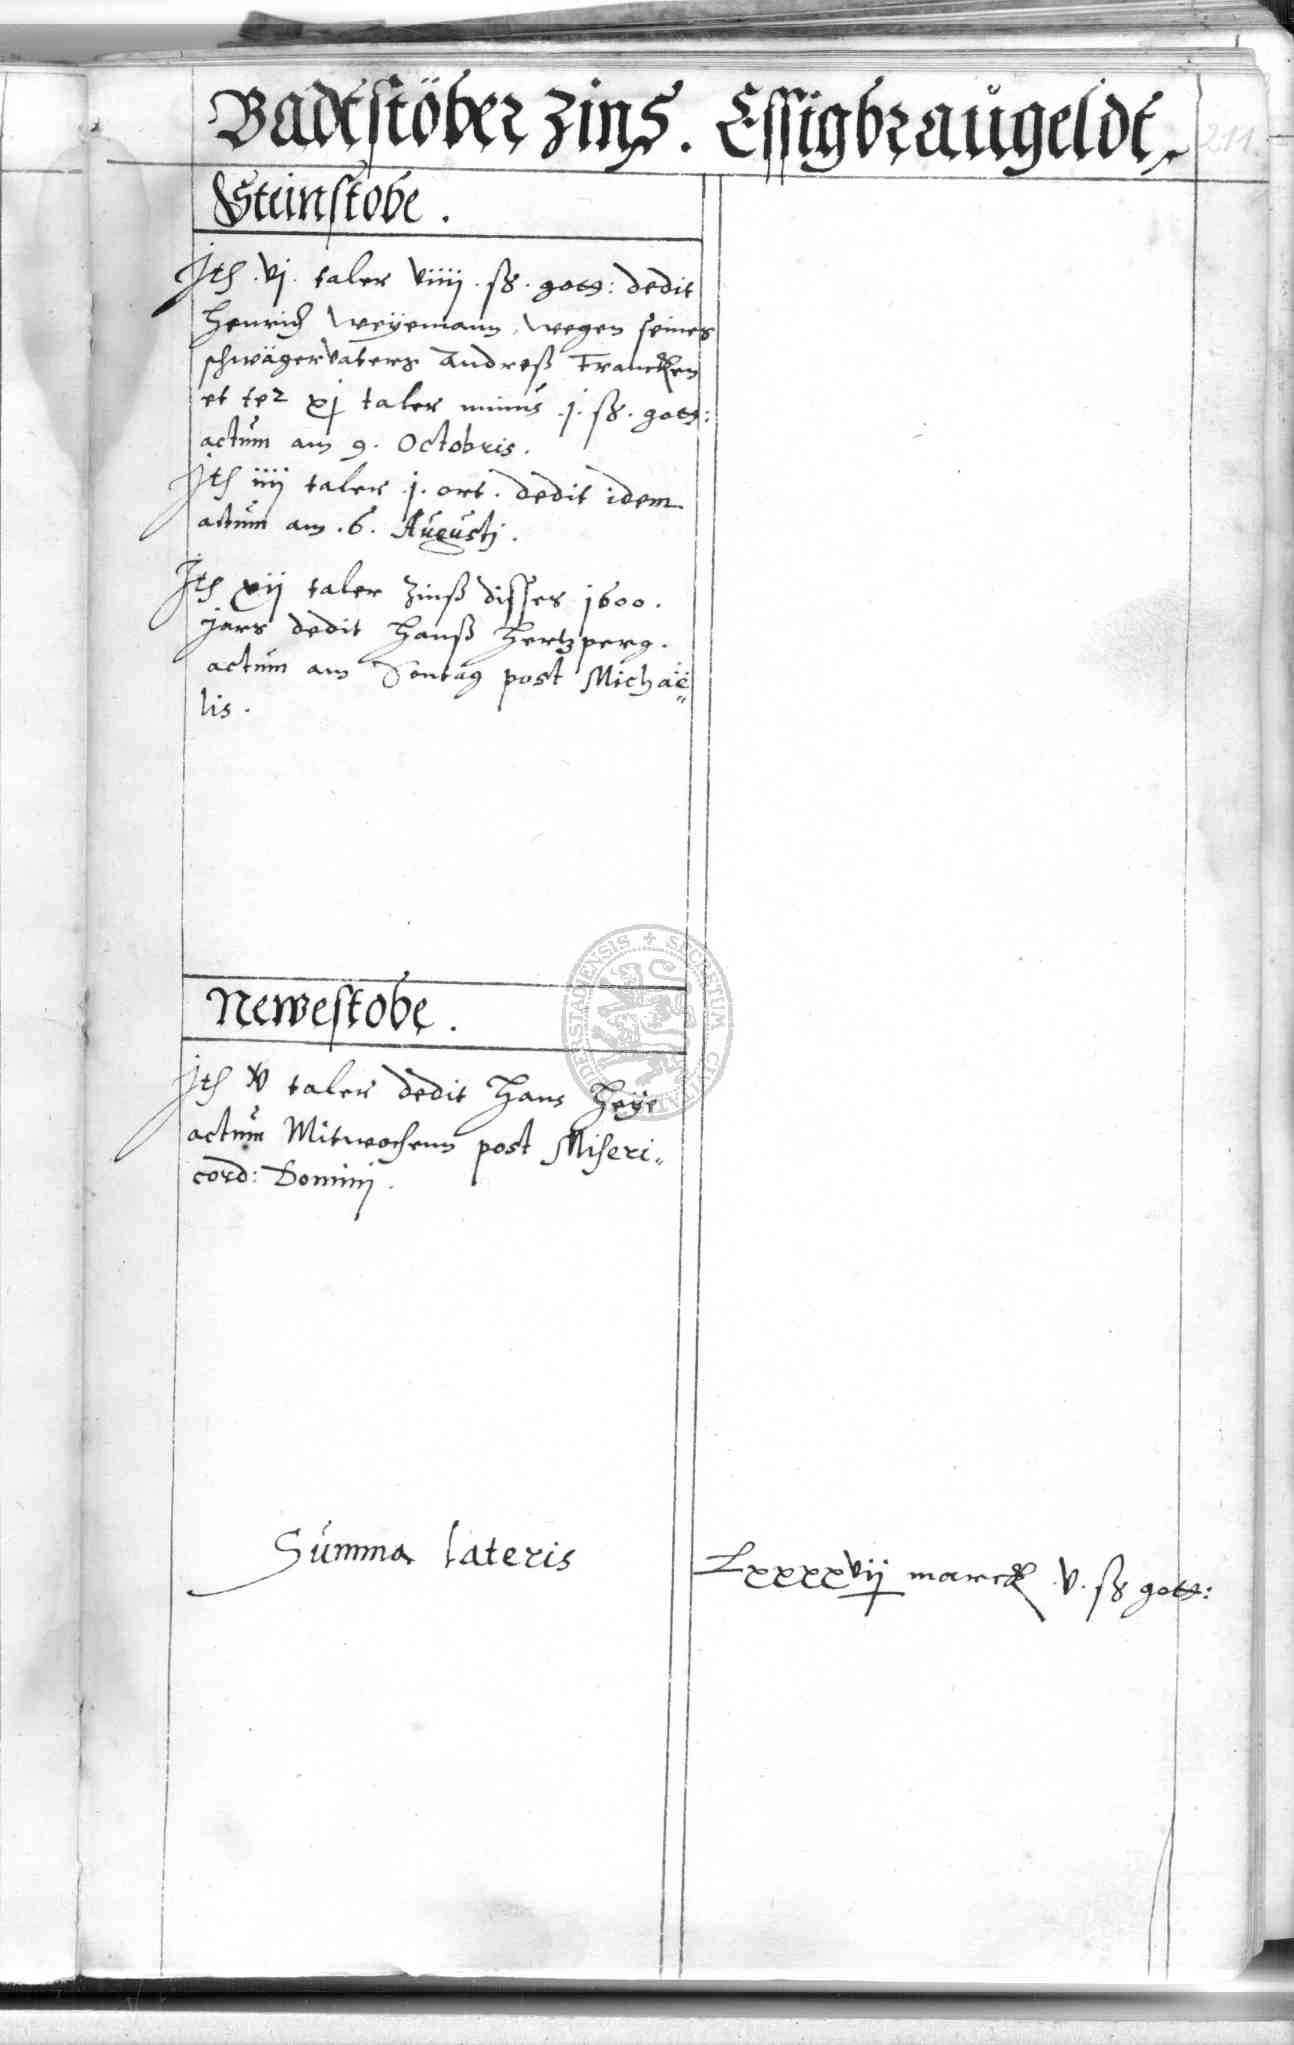 Badtstöber zinß. Essigbraŭgeldt.
211
Steinstobe.
Ite vj. taler viiij. ß. gott: dedit
Henrich Weÿemann, wegen seines
schwägervaters Andreß Francken
et te2 xj taler minus .j. ß. gott:
actŭm am 9. Octobris.
Ite iiij taler .j. ort. dedit idem
actŭm am .6. Aŭgustj.
Ite xij taler Zinß disses 1600.
jars dedit Hanß Hertzperg.
actŭm am Sontag post Michaë„
lis.
Newestobe.
Ite xv taler dedit Hans Heÿe
actŭm Mitwochenn post Miseri„
cord: Dominj.
Sŭmma lateris Lxxxxvij marck .v. ß gott:
SECRETUM CIVITATIS DUDERSTADIENSIS